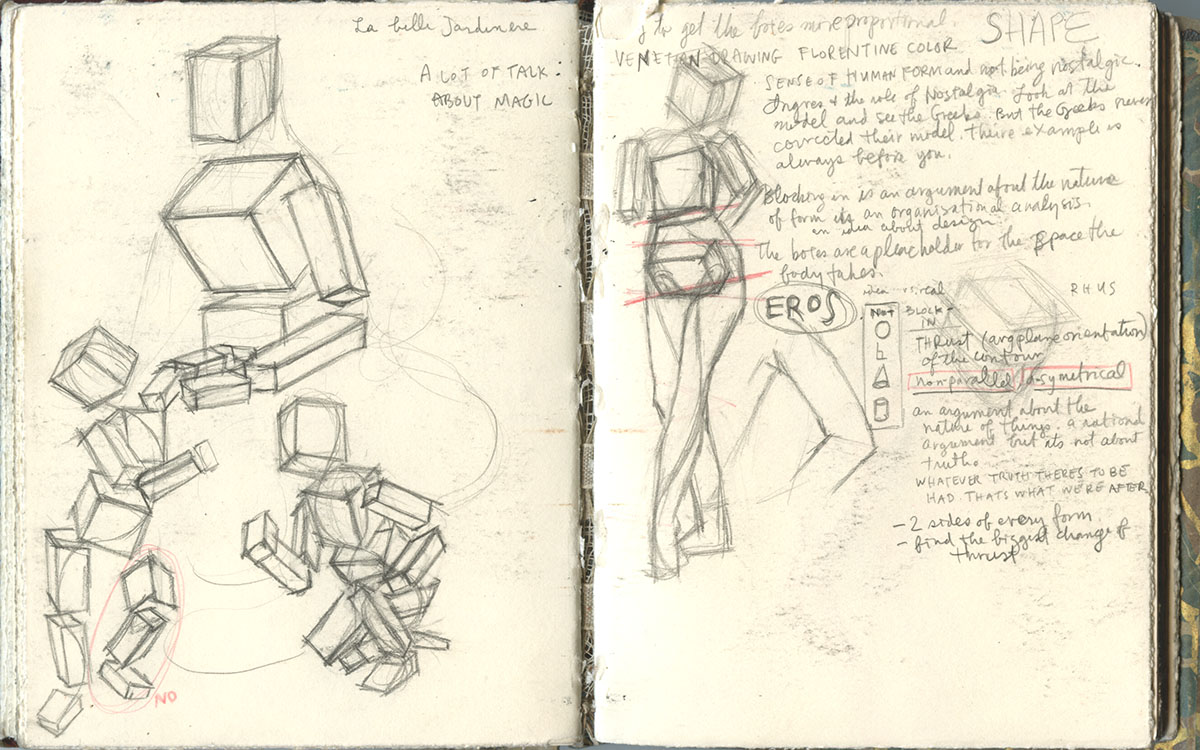 La belle Jardiniere
A LOT OF TALK
ABOUT MAGIC
NO
to get the boxes more proportional.
SHAPE
VENETIAN DRAWING FLORENTINE COLOR
SENSE OF HUMAN FORM and not being nostalgic.
Ingres & the role of Nostalgia. Look at the
model and see the Greeks. But the Greeks never
corrected their model. Their example is
always before you.
Blocking in is an argument about the nature
of form its an organisational analysis.
an idea about design.
The boxes are a placeholder for the space the
body takes.
idea vs. real
RHUS
EROS
NOT
BLOCK-
IN
THRUST (avg plane orientation)
of the contour
non-parallel / a-symetrical
an argument about the
nature of things. a rational
argument but its not about
truth.
WHATEVER TRUTH THERES TO BE
HAD. THATS WHAT WE'RE AFTER
- 2 sides of every form
- find the biggest change of
thrust